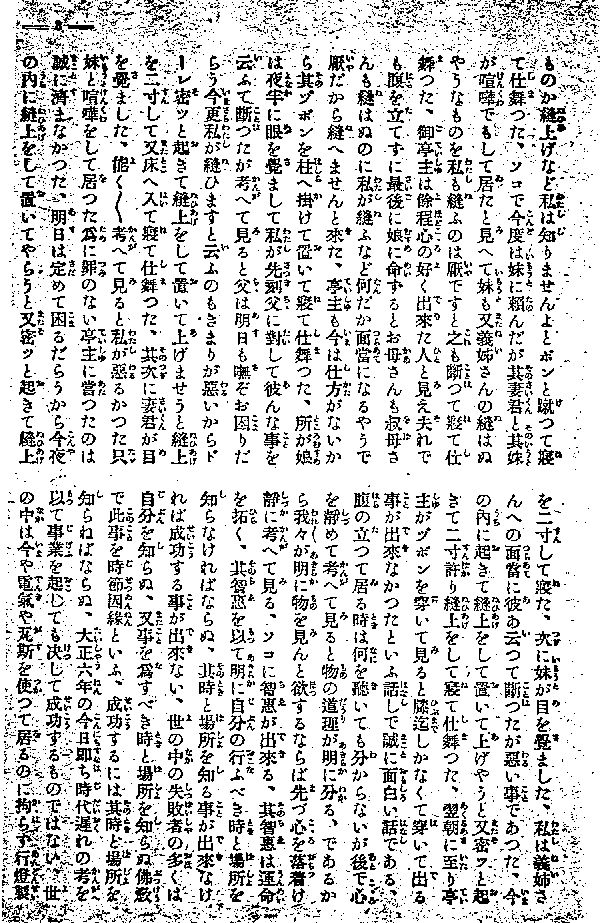 — 3 —
ものか縫上げなど私は知りませんよとポンと蹴つて寢
て仕舞つた、ソコで今度は妹に賴んだが其妻君と其妹
が喧嘩でもして居たと見へて妹も又義姉さんの縫はぬ
やうなものを私も縫ふのは厭ですと之も斷つて寢て仕
舞つた、御亭主は餘程心の好く出來た人と見え夫れで
も腹を立てずに最後に娘に命ずるとお母さんも叔母さ
んも縫はぬのに私が縫ふなど何だか面當になるやうで
厭だから縫へませんと來た、亭主も今は仕方がないか
ら其ヅボンを柱へ掛けて置いて寢て仕舞つた、所が娘
は夜半に眼を覺まして私が先刻父に對して彼んな事を
云ふて斷つたが考へて見ると父は明日も嘸ぞお困りだ
らう今更私が縫ひますと云ふのもきまりが惡いからド
ーレ密ッと起きて縫上をして置いて上げませうと縫上
を二寸して又床へ入て寢て仕舞つた、其次に妻君が目
を覺ました、能く〳〵考へて見ると私が惡るかつた只
妹と喧嘩をして居つた爲に罪のない亭主に當つたのは
誠に濟まなかつた、明日は定めて困るだらうから今夜
の內に縫上をして置いてやらうと又密ッと起きて縫上
を二寸して寢た、次に妹が目を覺ました、私は義姉さ
んへの面當に彼あ云つて斷つたが惡い事であつた、今
の內に起きて縫上をして置いて上げやうと又密ッと起
きて二寸許り縫上をして寢て仕舞つた、翌朝に至り亭
主がヅボンを穿いて見ると膝迄しかなくて穿いて出る
事が出來なかつたといふ話しで誠に面白い話である、
腹の立つて居る時は何を聽いても分からないが後で心
を靜めて考へて見ると物の道理が明に分る、であるか
ら我々が明に物を見んと欲するならば先づ心を落着け
靜に考へて見る、ソコに智惠が出來る、其智惠は運命
を拓く、其智惠を以て明に自分の行ふべき時と場所を
知らなければならぬ、其時と場所を知る事が出來なけ
れば成功する事が出來ない、世の中の失敗者の多くは
自分を知らぬ、又事を爲すべき時と場所を知らぬ佛敎
で此事を時節因緣といふ、成功するには其時と場所を
知らねばならぬ、大正六年の今日卽ち時代遲れの考を
以て事業を起しても决して成功するものではない、世
の中は今や電氣や瓦斯を使つて居るのに拘らず行燈製